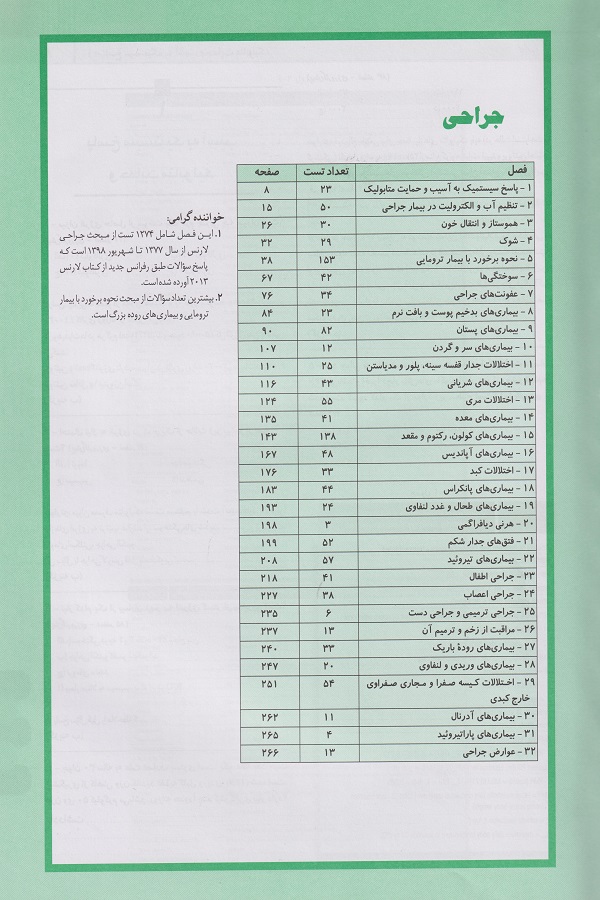 جراحی
فصل تعداد تست صفحه
۱ - پاسخ سیستمیک به آسیب و حمایت متابولیک ۲۳ ۸
۲ - تنظیم آب و الکترولیت در بیمار جراحی ۵۰ ۱۵
۳ - هموستاز و انتقال خون ۳۰ ۲۶
۴ - شوک ۲۹ ۳۲
۵ - نحوه برخورد با بیمار ترومایی ۱۵۳ ۳۸
۶ - سوختگی‌ها ۴۲ ۶۷
۷ - عفونت‌های جراحی ۳۴ ۷۶
۸ - بیماری‌های بدخیم پوست و بافت نرم ۲۳ ۸۴
۹ - بیماری‌های پستان ۸۲ ۹۰
۱۰ - بیماری‌های سر و گردن ۱۲ ۱۰۷
۱۱ - اختلالات جدار قفسه سینه، پلور و مدیاستن ۲۵ ۱۱۰
۱۲ - بیماری‌های شریانی ۴۳ ۱۱۶
۱۳ - اختلالات مری ۵۵ ۱۲۴
۱۴ - بیماری‌های معده ۴۱ ۱۳۵
۱۵ - بیماری‌های کولون، رکتوم و مقعد ۱۳۸ ۱۴۳
۱۶ - بیماری‌های آپاندیس ۴۸ ۱۶۷
۱۷ - اختلالات کبد ۳۳ ۱۷۶
۱۸ - بیماری‌های پانکراس ۴۴ ۱۸۳
۱۹ - بیماری‌های طحال و غدد لنفاوی ۲۴ ۱۹۳
۲۰ - هرنی دیافراگمی ۳ ۱۹۸
۲۱ - فتق‌های جدار شکم ۵۲ ۱۹۹
۲۲ - بیماری‌های تیروئید ۵۷ ۲۰۸
۲۳ - جراحی اطفال ۴۱ ۲۱۸
۲۴ - جراحی اعصاب ۳۸ ۲۲۷
۲۵ - جراحی ترمیمی و جراحی دست ۶ ۲۳۵
۲۶ - مراقبت از زخم و ترمیم آن ۱۳ ۲۳۷
۲۷ - بیماری‌های رودهٔ باریک ۳۳ ۲۴۰
۲۸ - بیماری‌های وریدی و لنفاوی ۲۰ ۲۴۷
۲۹ - اختلالات کیسه صفرا و مجاری صفراوی ۵۴ ۲۵۱
خارج کبدی
۳۰ - بیماری‌های آدرنال ۱۱ ۲۶۲
۳۱ - بیماری‌های پاراتیروئید ۴ ۲۶۵
۳۲ - عوارض جراحی ۱۳ ۲۶۶
خواننده گرامی:
۱. این فصل شامل ۱۲۷۴ تست از مبحث جراحی
لارنس از سال ۱۳۷۷ تا شهریور ۱۳۹۸ است که
پاسخ سؤالات طبق رفرانس جدید از کتاب لارنس
۲۰۱۳ آورده شده است.
۲. بیشترین تعداد سؤالات از مبحث نحوه برخورد با بیمار
ترومایی و بیماری‌های روده بزرگ است.